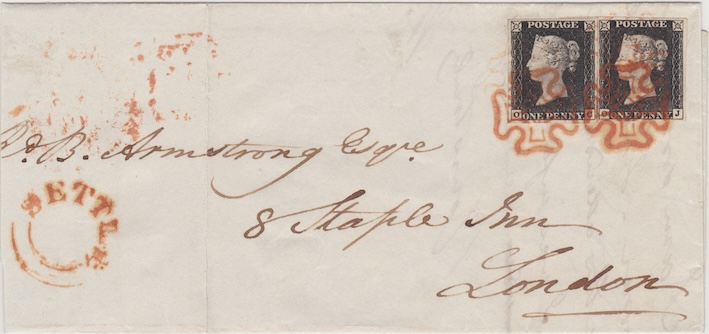 POSTAGE POSTAGE
ONE PENNY ONE PENNY
O O J
B. Armstrong Esqre.
SETTLE
8 Staple Inn
London